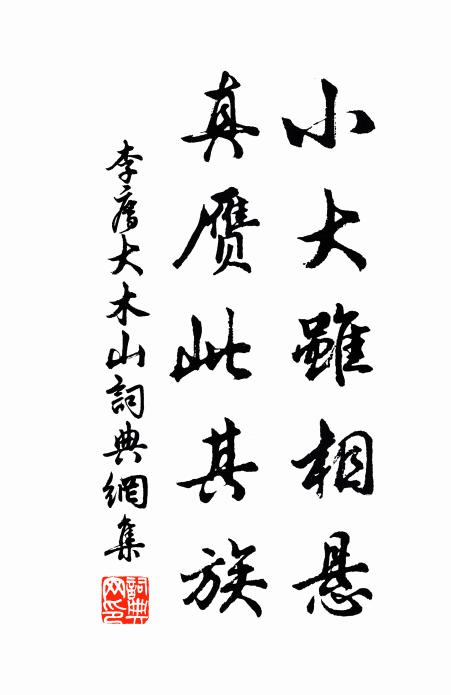 小大雖相懸
真赝此其族
李廌大木山詞典網集
詞典网印